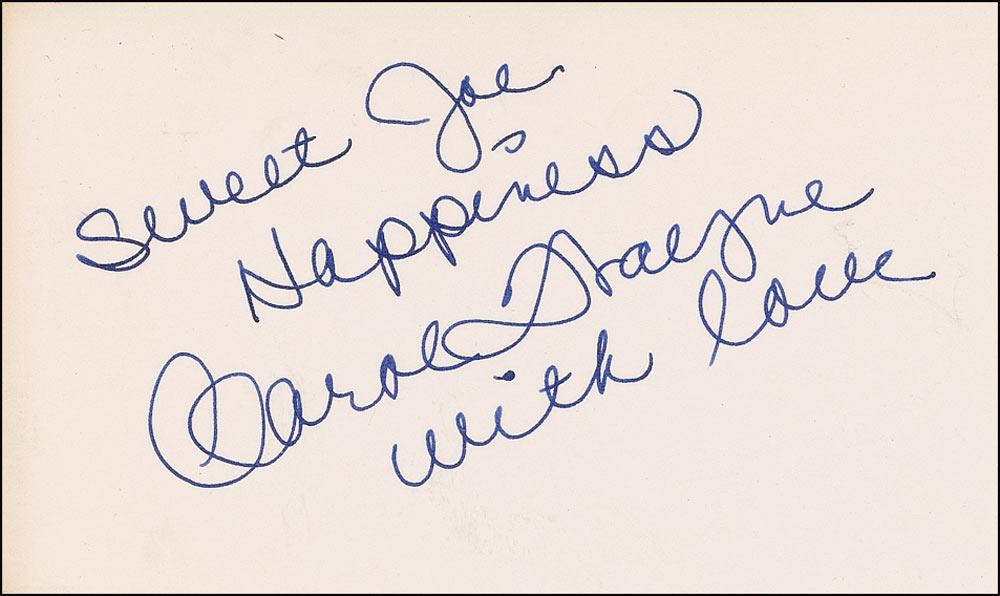 Sweet Joe
Happiness
Carol Wayne
with love